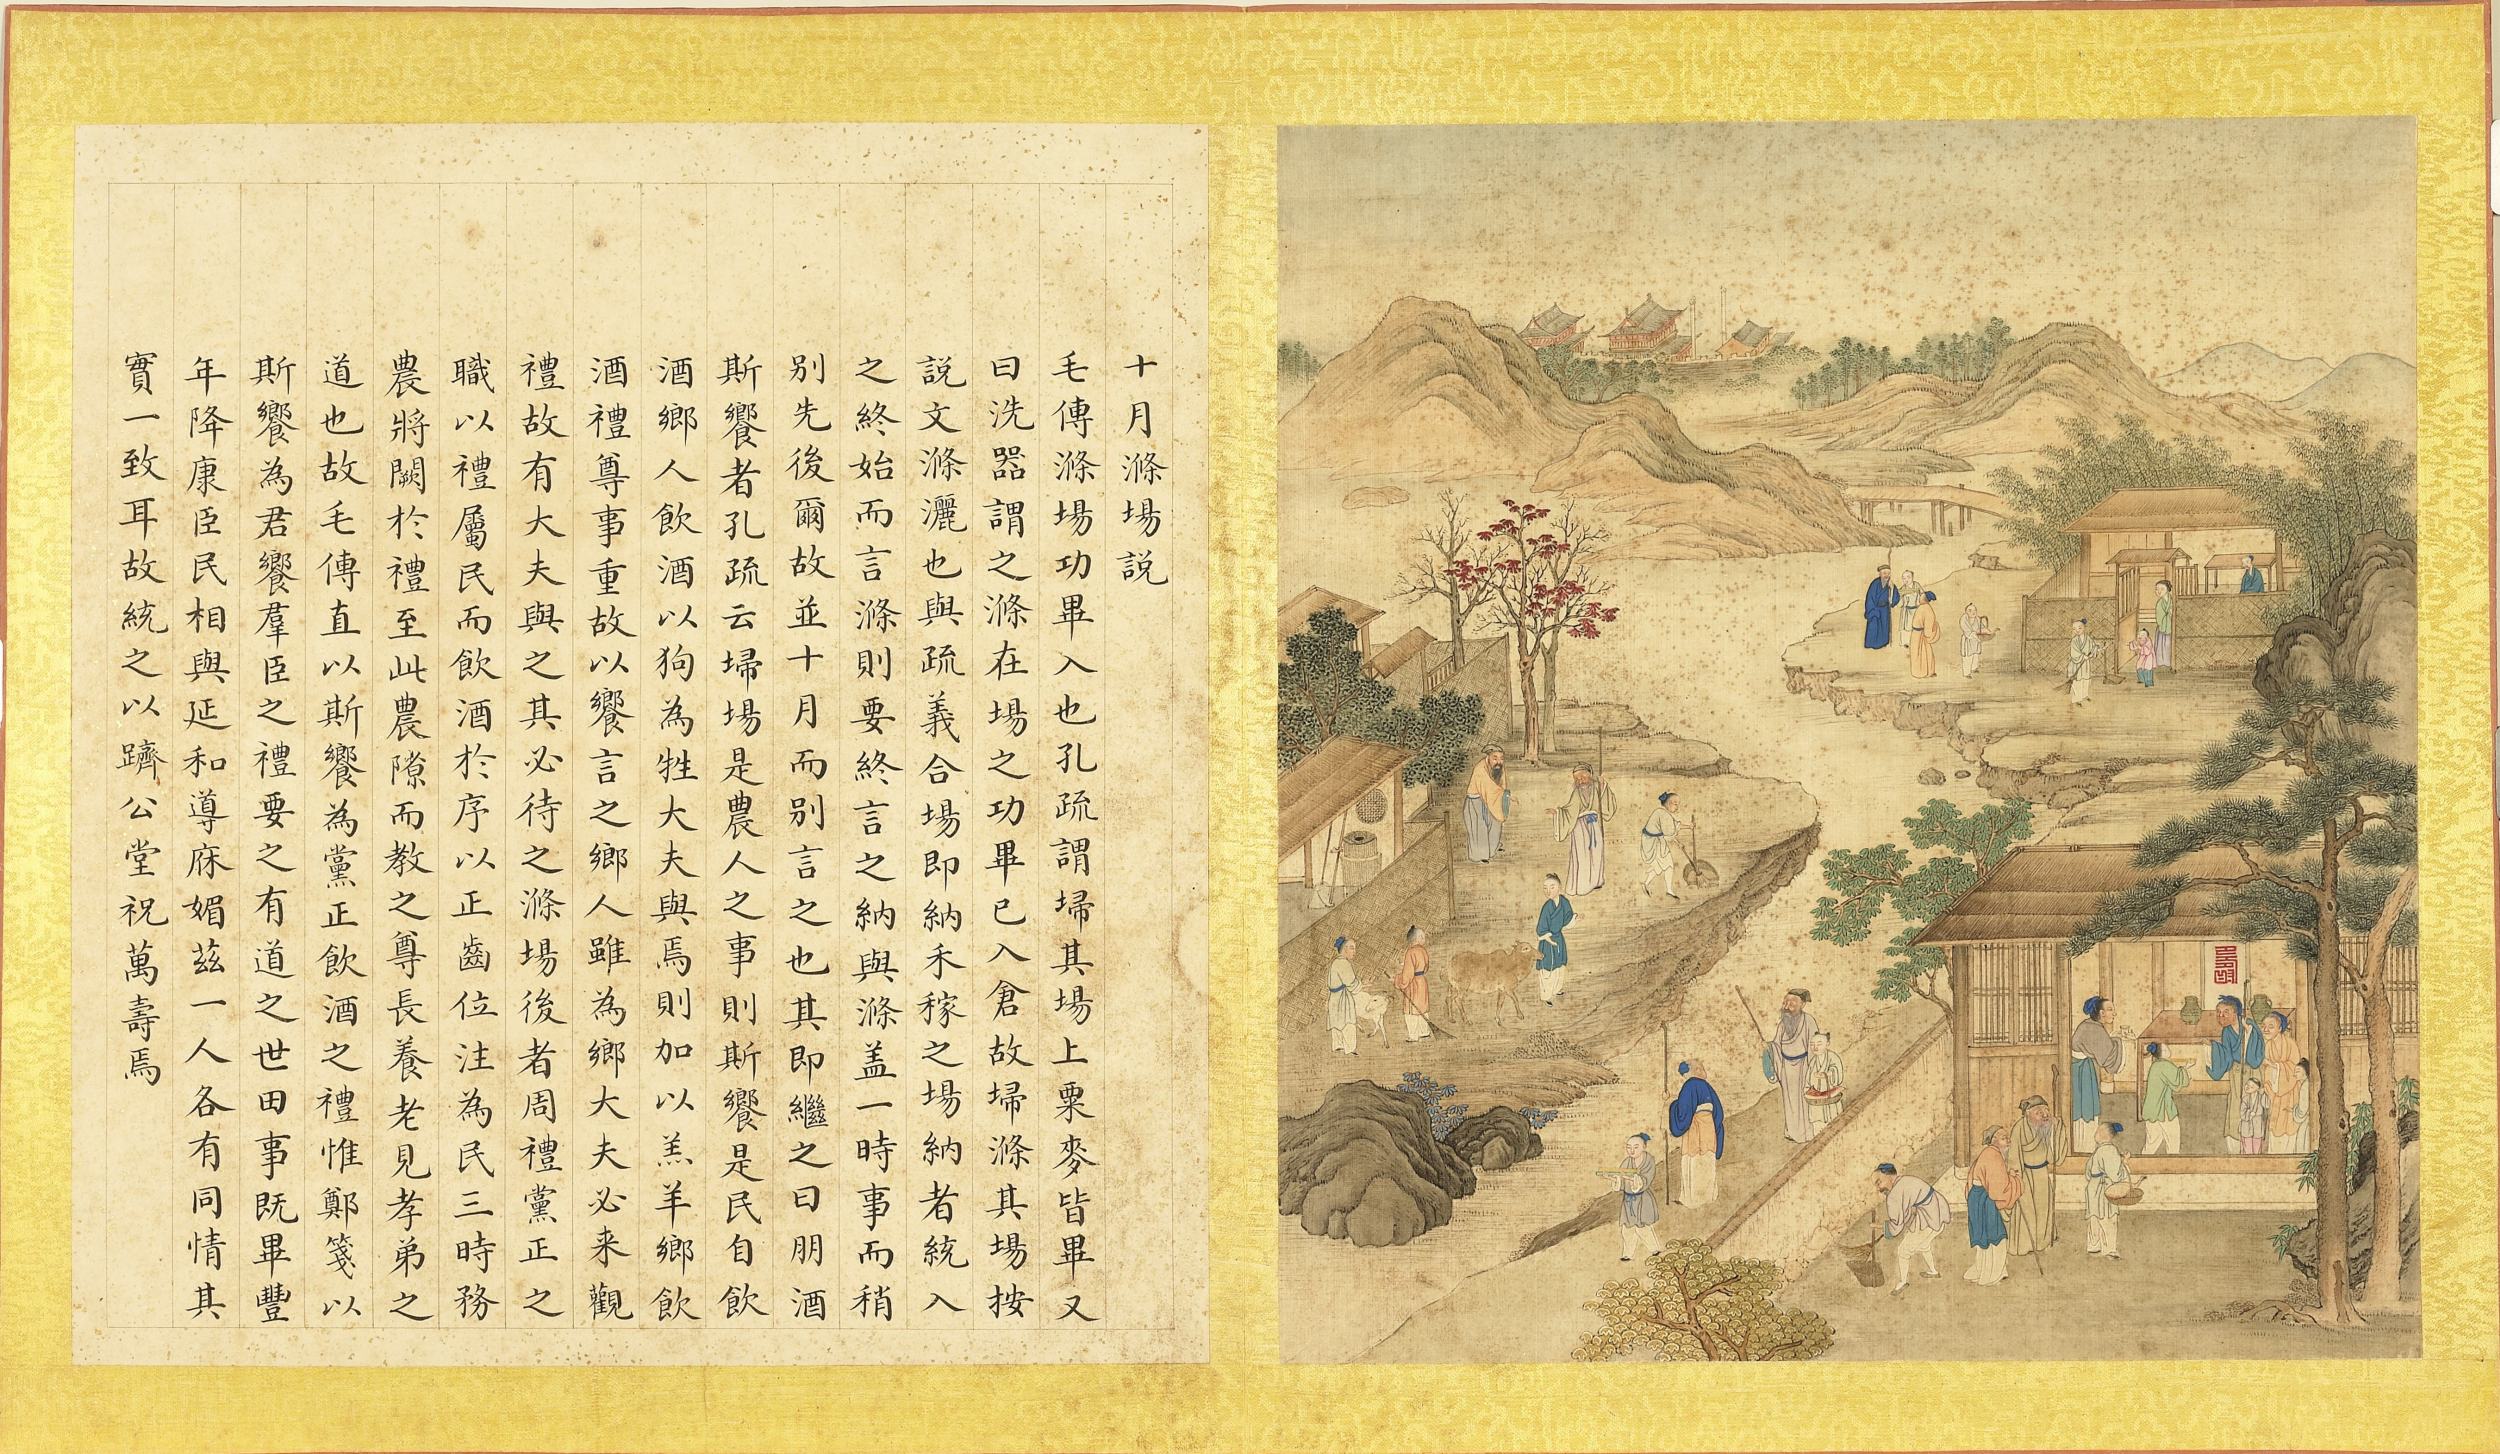 十月滌場説
毛傳滌場功畢入也孔疏謂埽其場上粟麥皆畢又
曰洗器謂之滌在場之功畢已入倉故埽滌其場按
説文滌灑也與疏義合場即納禾稼之場納者統入
之終始而言滌則要終言之納與滌盖一時事而稍
别先後爾故並十月而别言之也其即繼之曰朋酒
斯饗者孔疏云埽場是農人之事則斯饗是民自飲
酒鄉人飲酒以狗為牲大夫與焉則加以羔羊鄉飲
酒禮尊事重故以饗言之鄉人雖為鄉大夫必来觀
禮故有大夫與之其必待之滌場後者周禮黨正之
職以禮屬民而飲酒於序以正齒位注為民三時務
農將闕於禮至此農隙而教之尊長養老見孝弟之
道也故毛傳直以斯饗為黨正飲酒之禮惟鄭箋以
斯饗為君饗羣臣之禮要之有道之世田事既畢豐
年降康臣民相與延和導庥媚茲一人各有同情其
實一致耳故統之以躋公堂祝萬壽焉